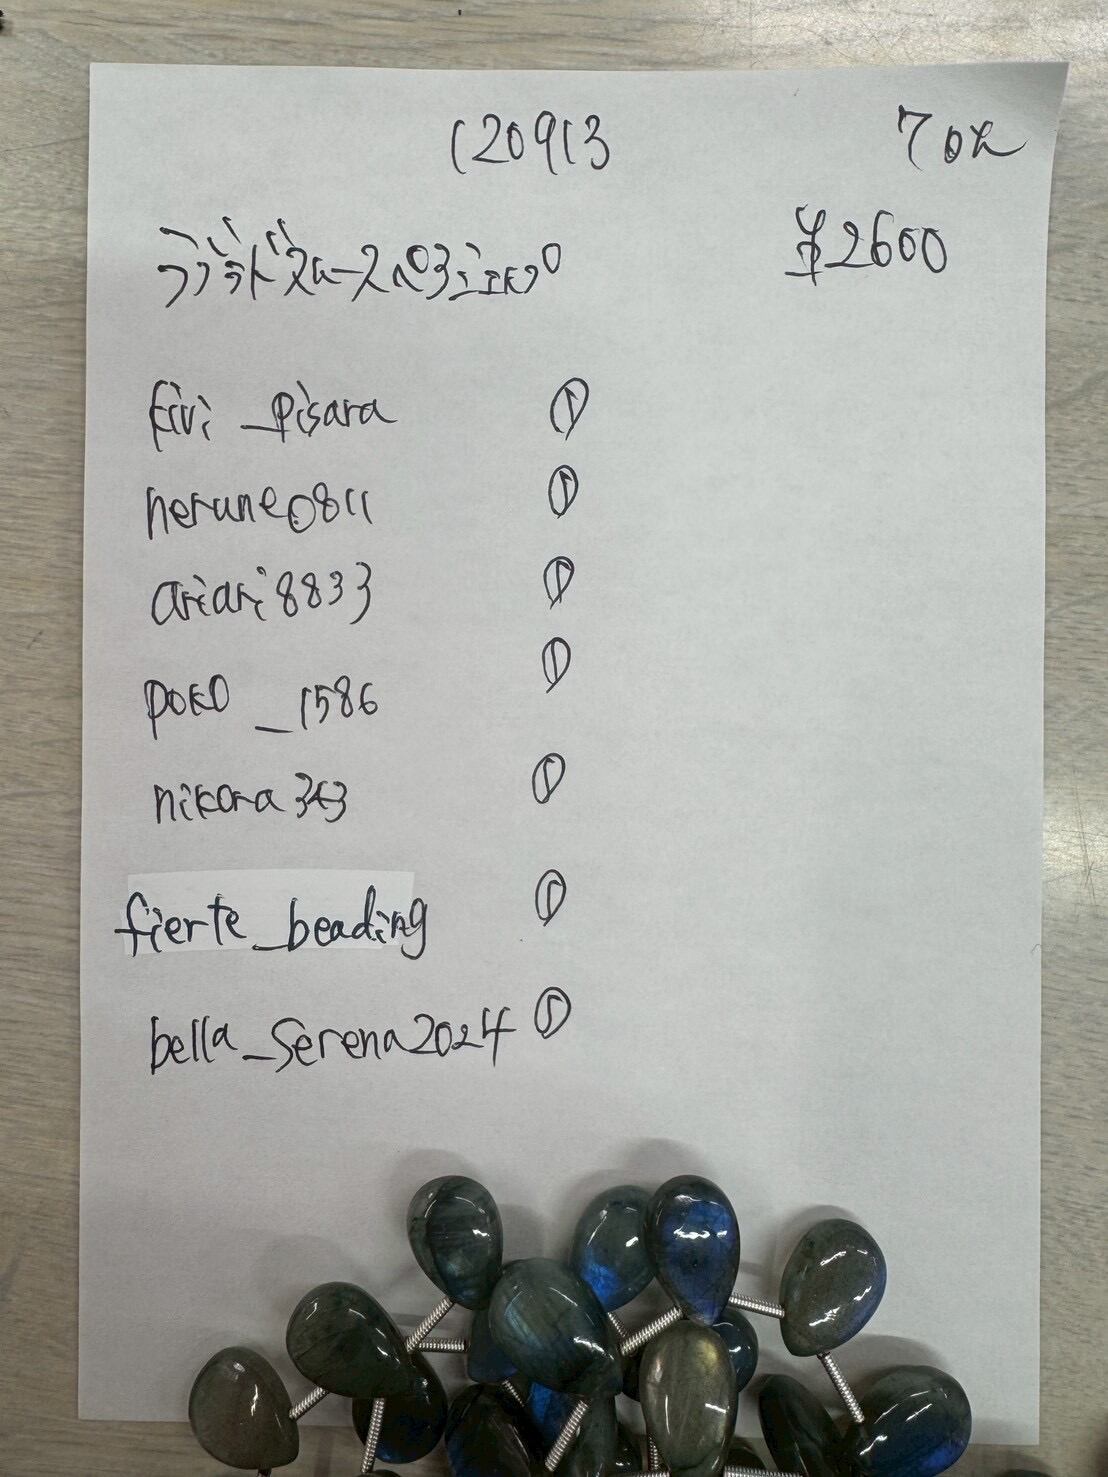 120913
¥2600
kivi_pisara ①
nerune0811 ①
ariari8833 ①
poko_1586 ①
nikora343 ①
fierte_beading ①
bella_serena2024 ①